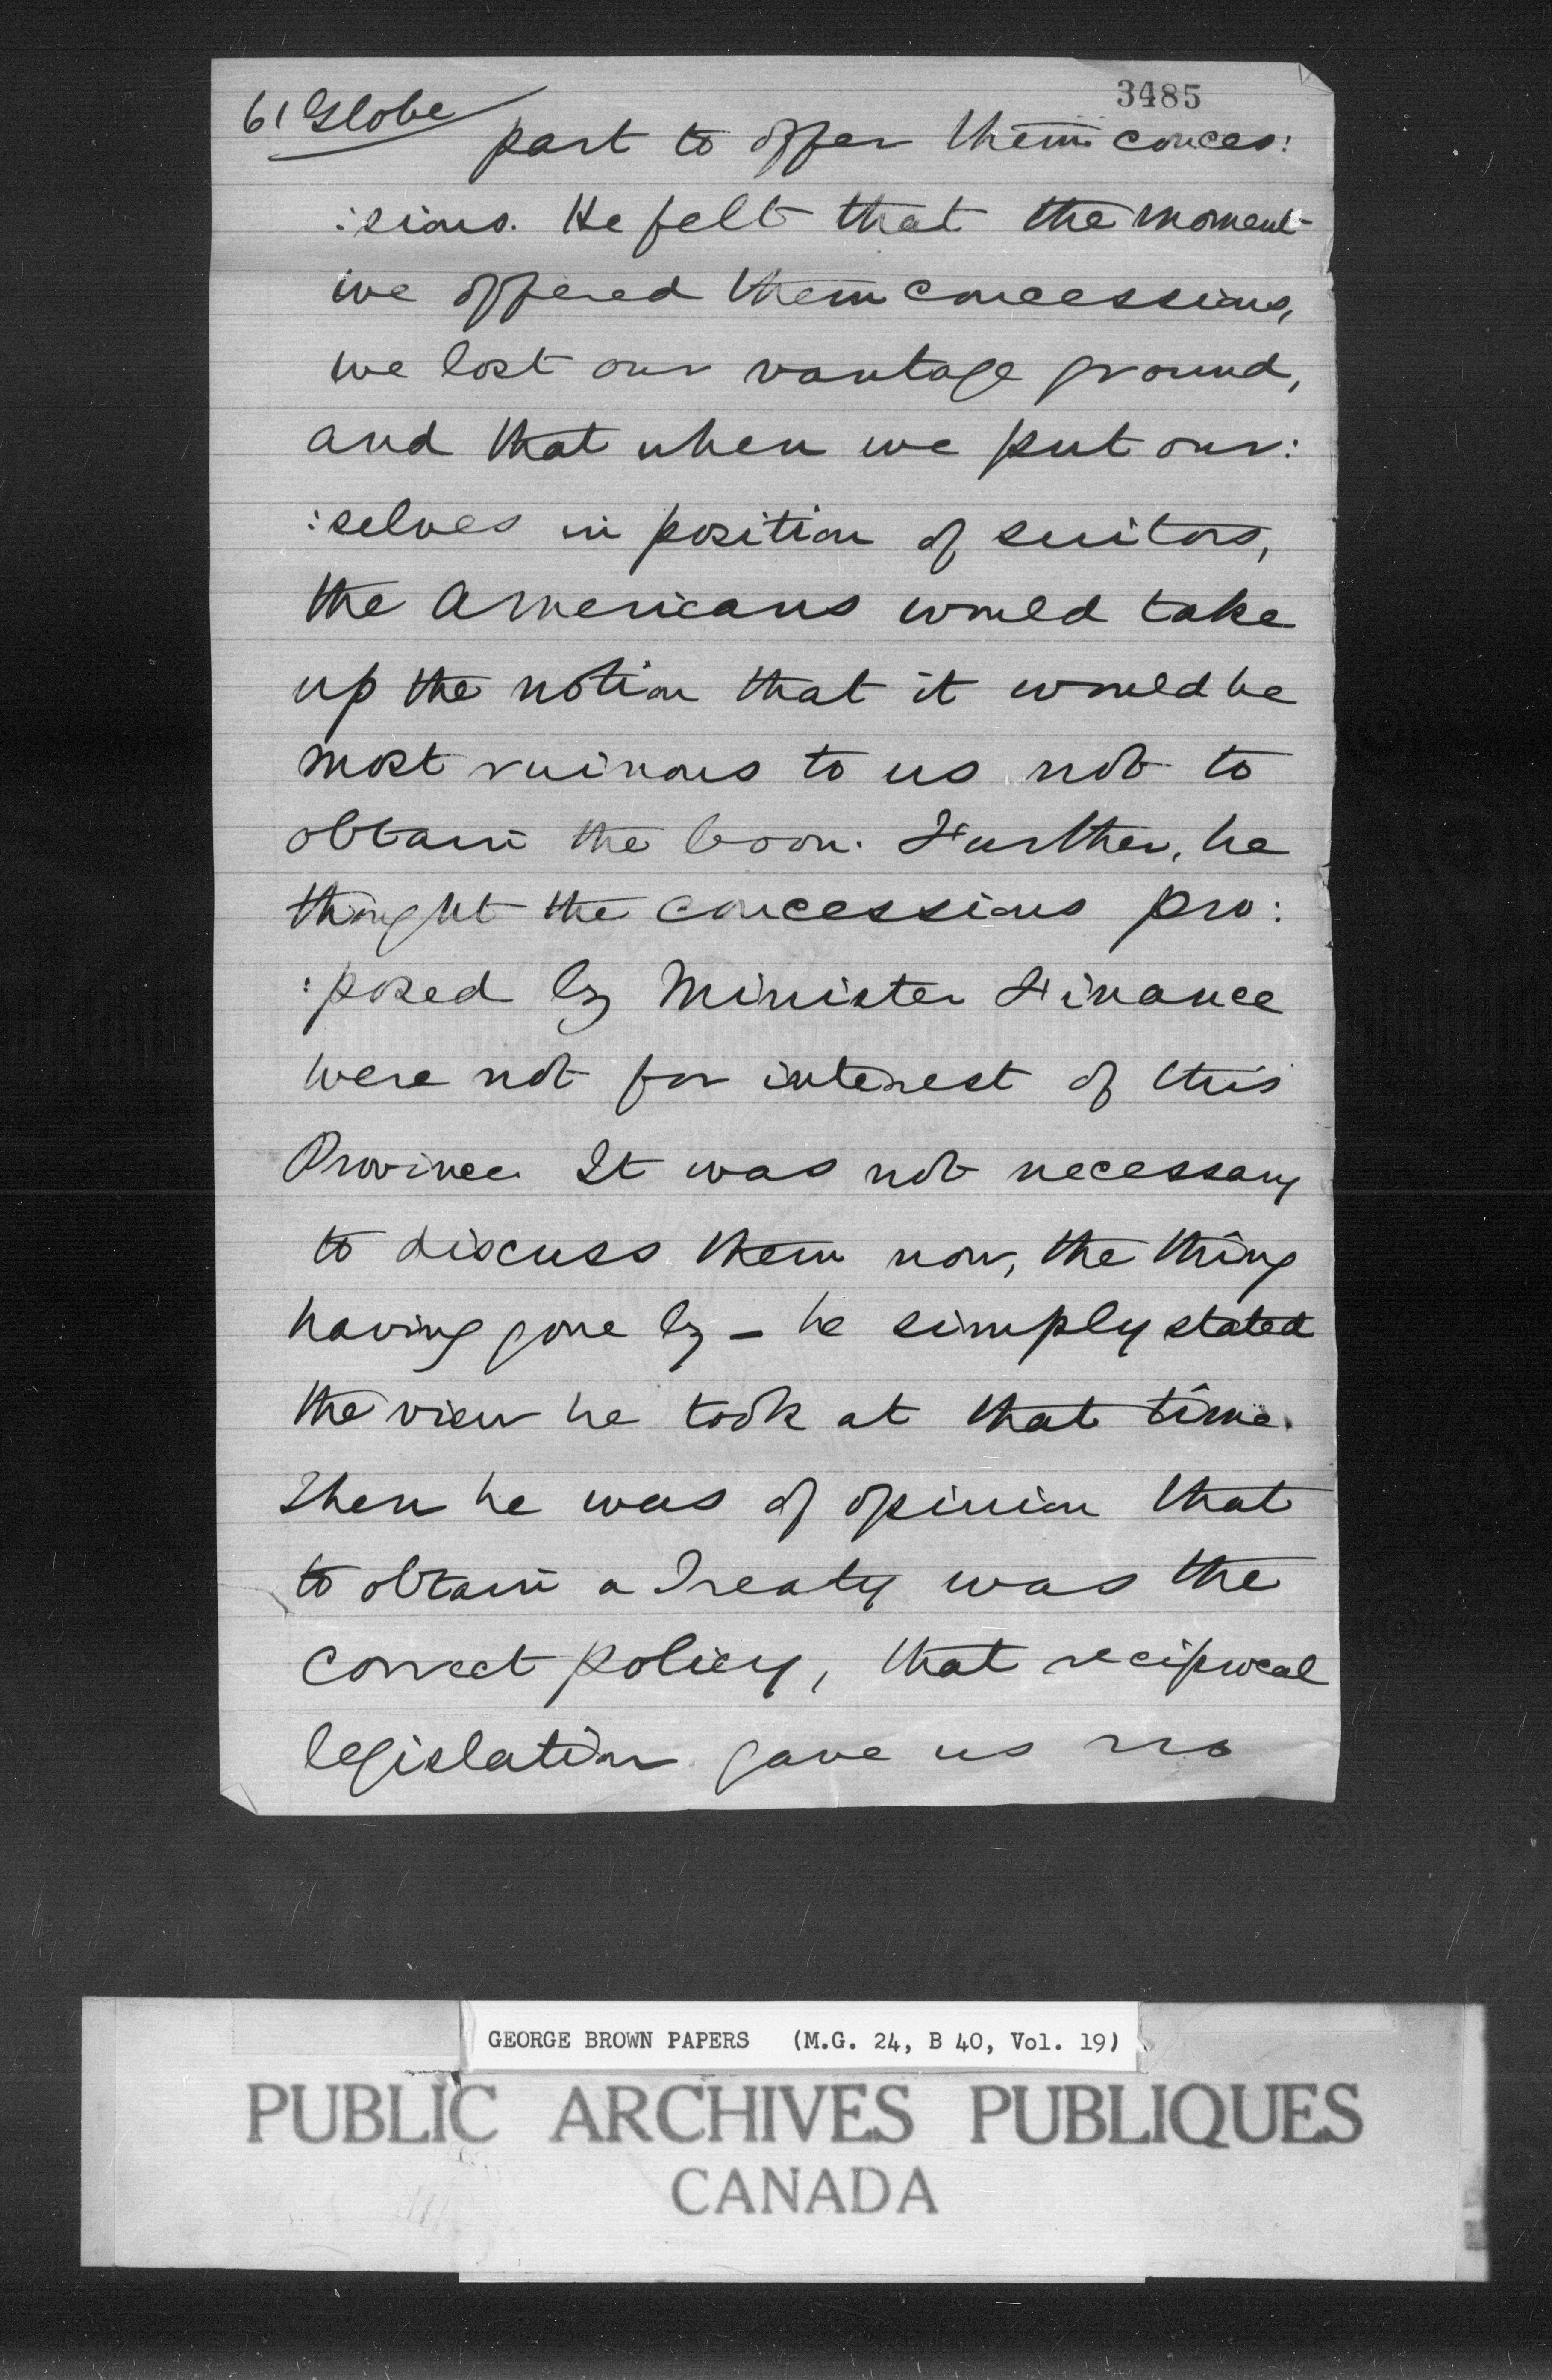 61 Globe
3485
part to offer them conces:
:sions. He felt that the moment
we offered them concessions,
we lost our vantage ground,
and that when we put our:
:selves in position of suitors,
the Americans would take
up the notion that it would be
most ruinous to us not to
obtain the boon. Further, he
thought the concessions pro:
:posed by Minister Finance
were not for interest of this
Province. It was not necessary
to discuss them now, the thing
having gone by - he simply stated
the view he took at that time.
Then he was of opinion that
to obtain a Treaty was the
correct policy, that reciprocal
legislation gave us no
GEORGE BROWN PAPERS (M.G. 24, B 40, Vol. 19)
PUBLIC ARCHIVES PUBLIQUES
CANADA